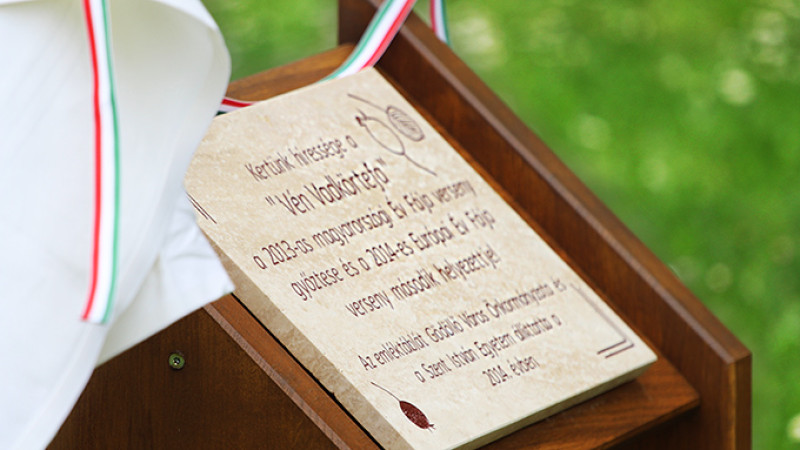 Kertünk híressége a
"Vén Vadkörtefa"
a 2013-as magyarországi Év Fája verseny
győztese és a 2014-es Európai Év Fája
verseny második helyezettje!
Az emléktáblát Gödöllő Város Önkormányzata és
a Szent István Egyetem állíttatta a
2014. évben